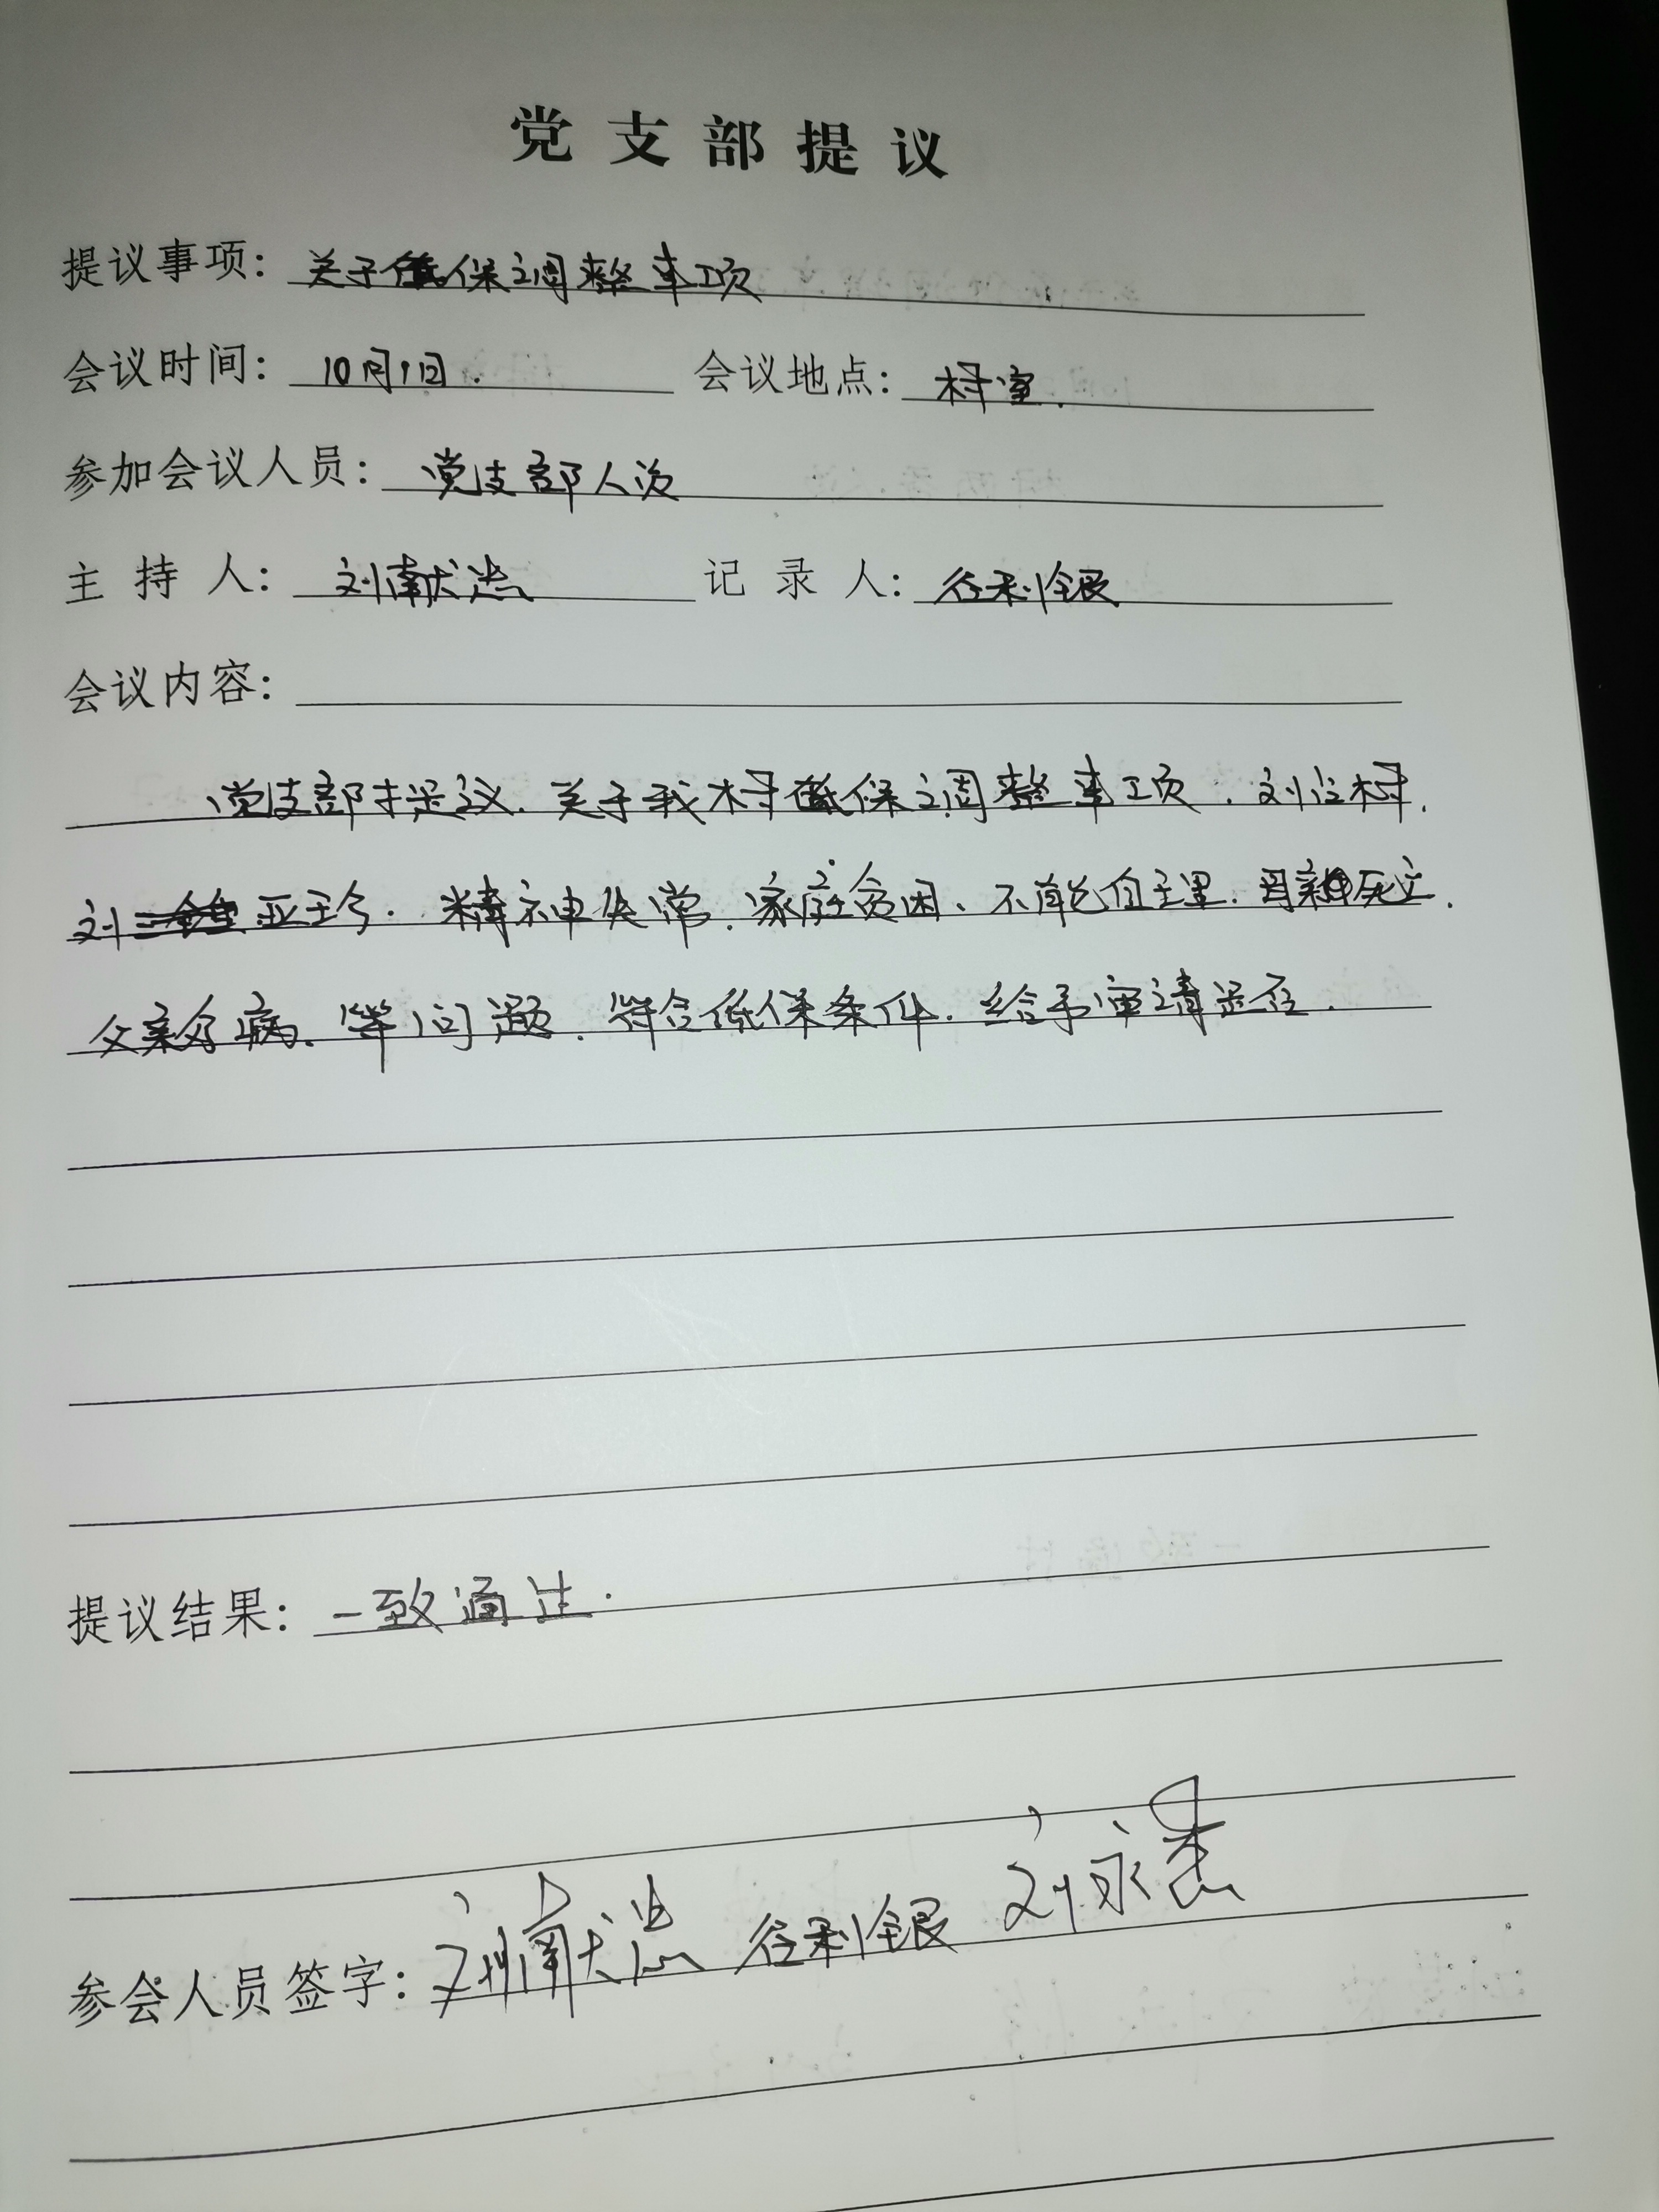 党支部提议
提议事项：关于低保调整事项
会议时间：10月1日. 会议地点：村室.
参加会议人员：党支部人员
主持人：刘献忠 记录人：徐利银
会议内容：
党支部提议.关于我村低保调整事项.刘位村.
刘亚珍.精神失常.家庭贫困、不能自主理.母亲死亡.
父亲多病.等问题.符合低保条件.给予审请是否.
提议结果：一致通过.
参会人员签字：刘献忠 徐利银 刘永